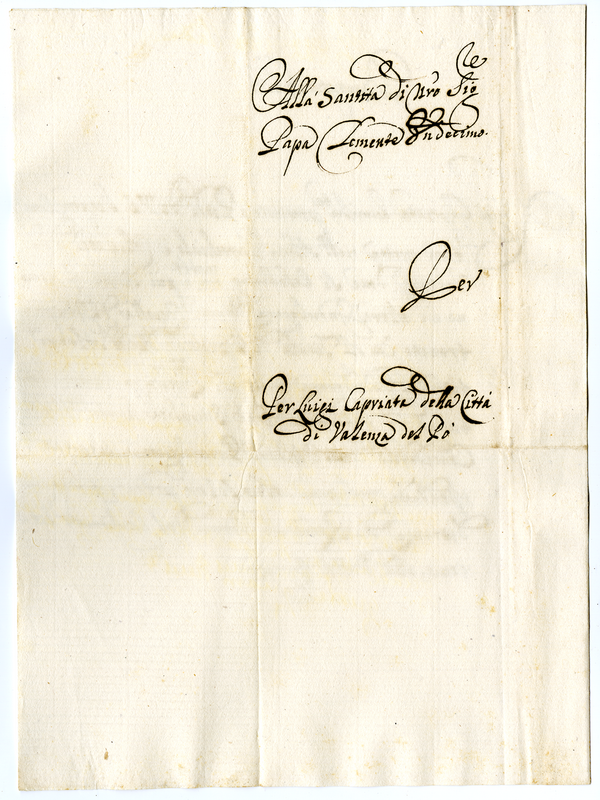 Alla Santità di Nro Sigre
Papa Clemente Undecimo.
Per
Per Luigi Capriata della Città
di Valenza del Pò